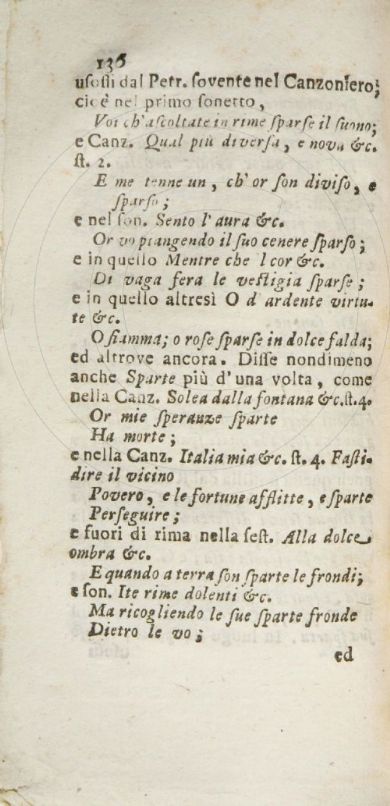 136
usossi dal Petr. sovente nel Canzoniero;
cioè nel primo sonetto,
Voi ch'ascoltate in rime sparse il suono;
e Canz. Qual più diversa, e nova &c.
st. 2.
E me tenne un, ch' or son diviso, e
sparso;
e nel son. Sento l' aura &c.
Or vo piangendo il suo cenere sparso;
e in quello Mentre che l cor &c.
Di vaga fera le vestigia sparse;
e in quello altresì O d' ardente virtu-
te &c.
O fiamma; o rose sparse in dolce falda;
ed altrove ancora. Disse nondimeno
anche Sparte più d'una volta, come
nella Canz. Solea dalla fontana &c. st. 4.
Or mie speranze sparte
Ha morte;
e nella Canz. Italia mia &c. st. 4. Fasti-
dire il vicino
Povero, e le fortune afflitte, e sparte
Perseguire;
e fuori di rima nella sest. Alla dolce
ombra &c.
E quando a terra son sparte le frondi;
e son. Ite rime dolenti &c.
Ma ricogliendo le sue sparte fronde
Dietro le vo;
ed